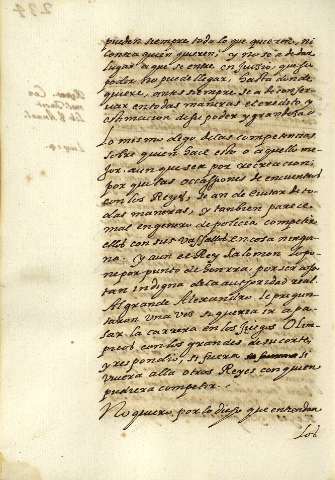 pueden siempre todo lo que quieren, ni
contra quien quieren; y no se a de dar
lugar a que se entre en Juicio, que su
poder no puede llegar, hasta donde
quiere, antes siempre se a de conser
uar en todas maneras el credito, y
estimacion de su poder y grandeza.
Lo mismo digo de las competencias
sobre quien hace esto o aquello me
jor, aun que sea por recreacion;
por que las occassiones de encuentro
con los Reyes, se an de euitar de to
das maneras, y tanbien parece
mas en genero de policia competir
ellos con sus vassallos en cosa ningu
na. y aun el Rey Salomon lo po
ne por punto de honrra, por ser cosa
tan indigna de la autoridad real.
Al grande Alexandro, le pregun
taron una vez si queria ir a pa
sar la carrera en los juegos Olim
picos con los grandes de su corte,
y respondio, si fuera si
viuiera alla otros Reyes con quien
pudiera competir.
No quiero por lo dicho que entiendan
los